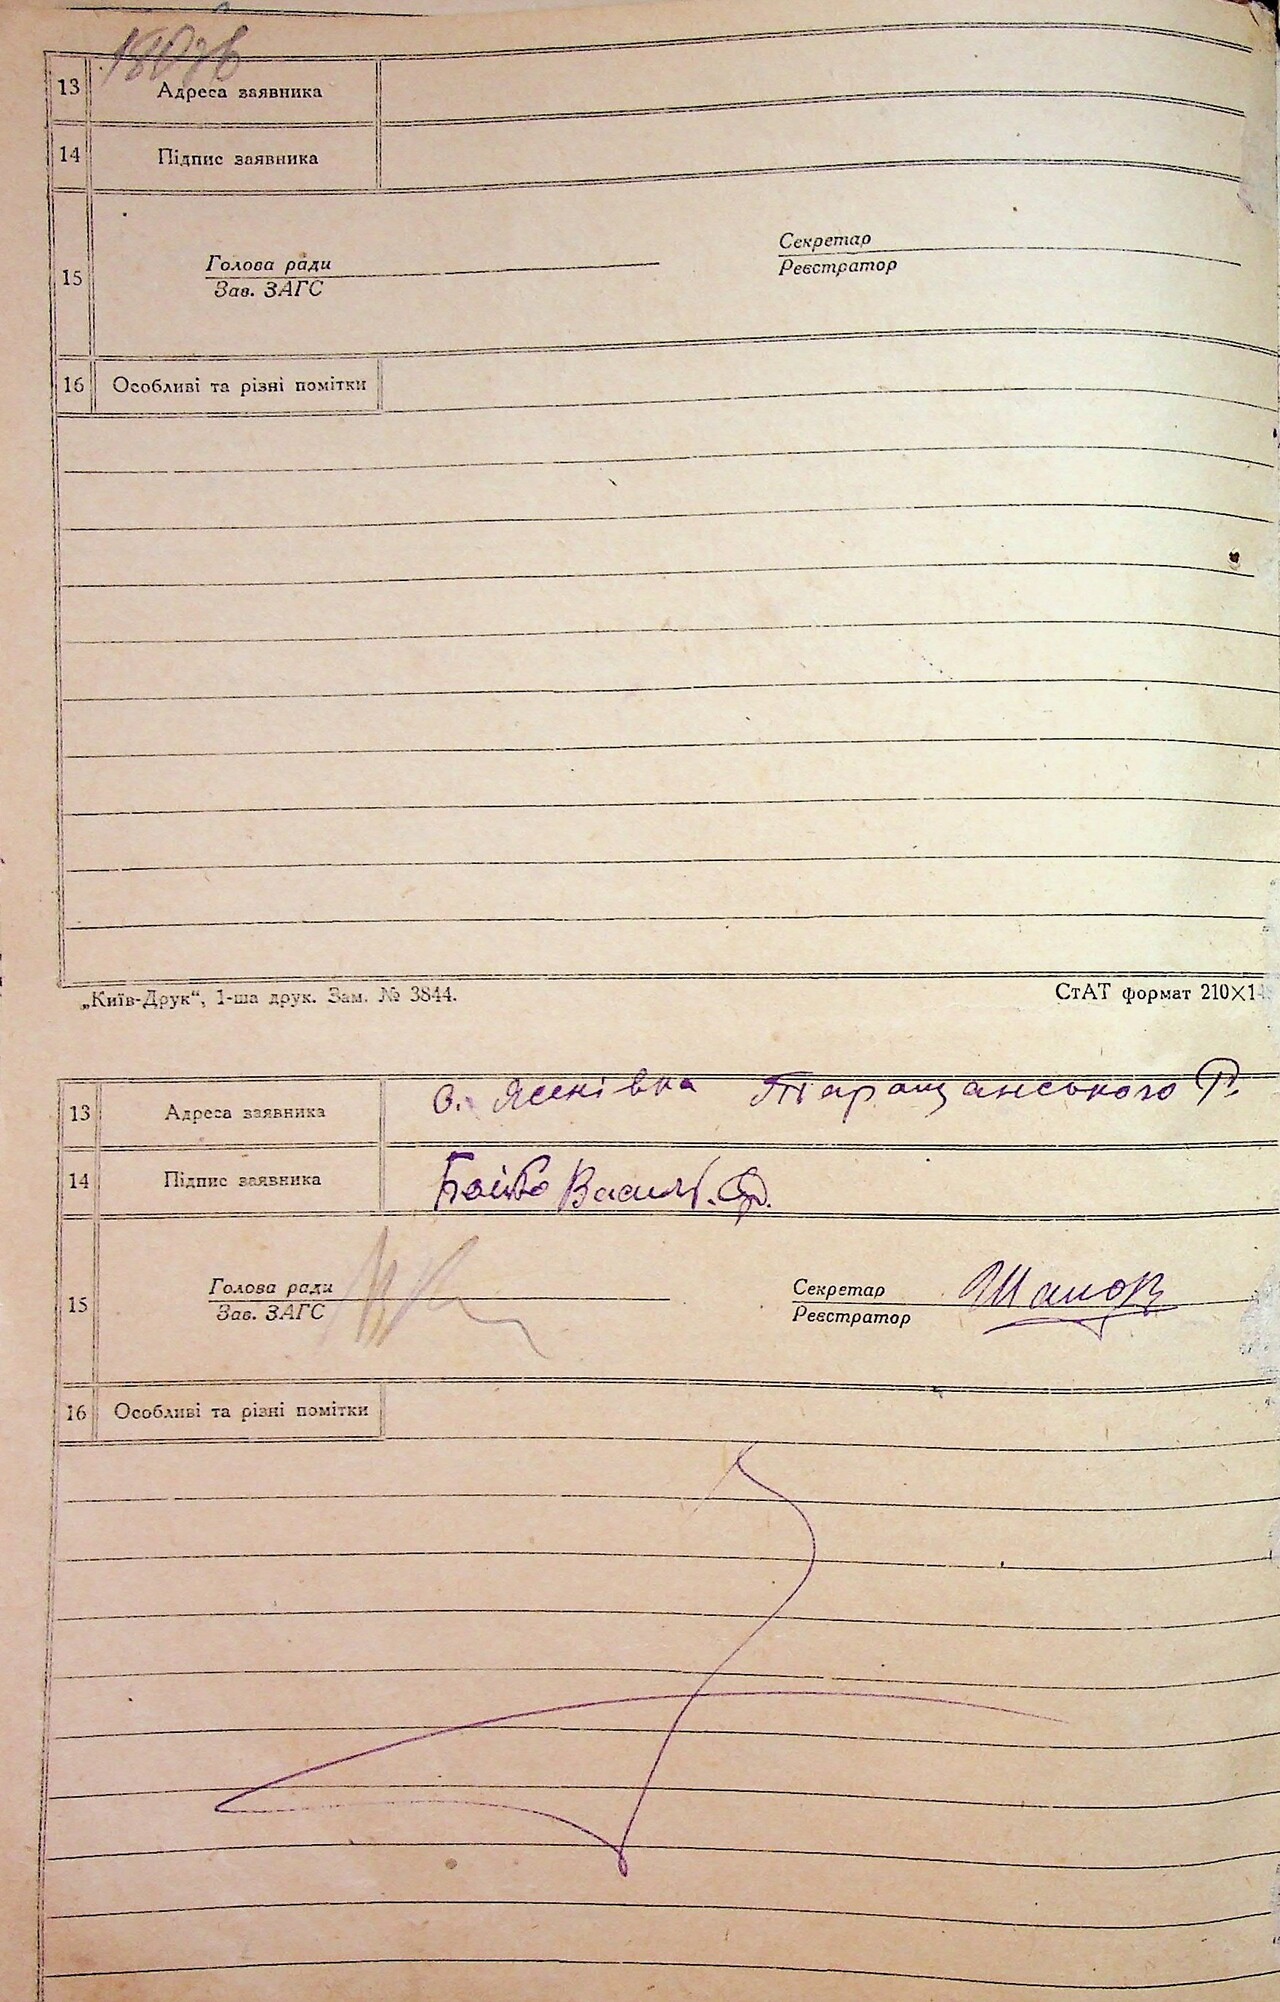 180зв
13 Адреса заявника
14 Підпис заявника
15 Голова ради Секретар
Зав. ЗАГС Реєстратор
16 Особливі та різні помітки
„Київ-Друк“, 1-ша друк. Зам. № 3844. СтАТ формат 210×148
13 Адреса заявника с. Яснівка Таращанського Р.
14 Підпис заявника Бойко Василь. Ф.
15 Голова ради Секретар
Зав. ЗАГС Реєстратор
16 Особливі та різні помітки